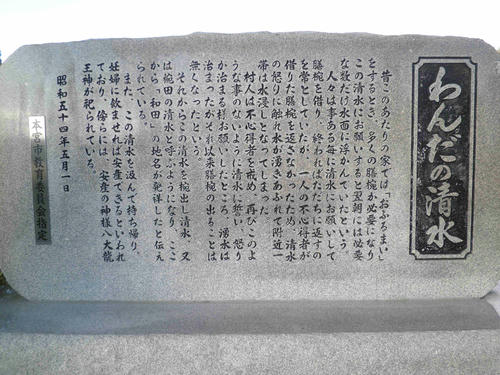 わんだの清水
昔このあたりの家では「おふるまい」
をするとき、多くの膳椀が必要になり
この清水にお願いすると翌朝には必要
な数だけ水面に浮かんていたという。
人々は事ある毎に清水にお願いして
膳椀を借り、終わればただちに返すの
を常としていたが、一人の不心得者が
借りた膳椀を返さなかったため、清水
の怒りに触れ水が湧きあふれて附近一
帯は水浸しとなってしまった。
村人は不心得者を戒め、再びこのよ
うな事のないように清水に誓い、怒り
が治まる様お願いしたところ、湧水は
治まったがそれ以来膳椀の出ることは
無くなったという。
それからこの清水を椀出し清水、又
は椀田の清水と呼ぶようになり、ここ
から「和田」の地名が発祥したと伝え
られている。
また、この清水を汲んで持ち帰り、
妊婦に飲ませれば安産できるといわれ
ており、傍らには、安産の神様八大龍
王神が祀られている。
昭和五十四年五月一日
本宮市教育委員会指定